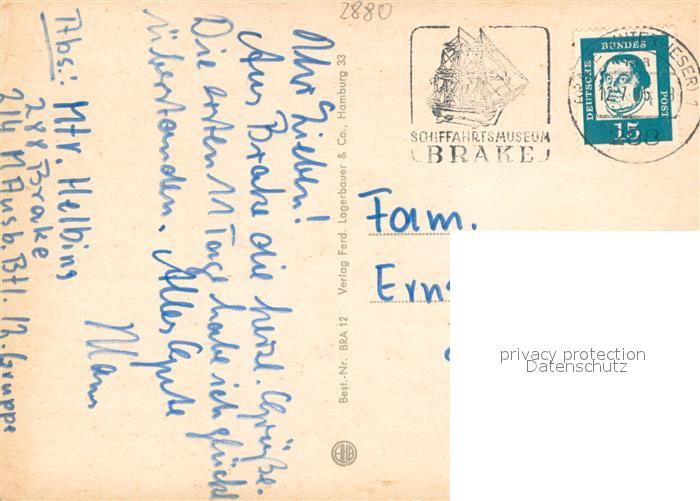 2880
SCHIFFAHRTSMUSEUM
BRAKE
DEUTSCHE
BUNDES
POST
15
288
Ihr Lieben!
Aus Brake die herzl. Grüße.
Die ersten 11 Tage habe ich glückl
überstanden. Alles Gute
Hans
Abs.: Mtr. Helbing
288 Brake
2/4 MAusb. Btl. 12. Gruppe
Best.-Nr. BRA 12 Verlag Ferd. Lagerbauer & Co., Hamburg 33
Fam.
Erns
privacy protection
Datenschutz